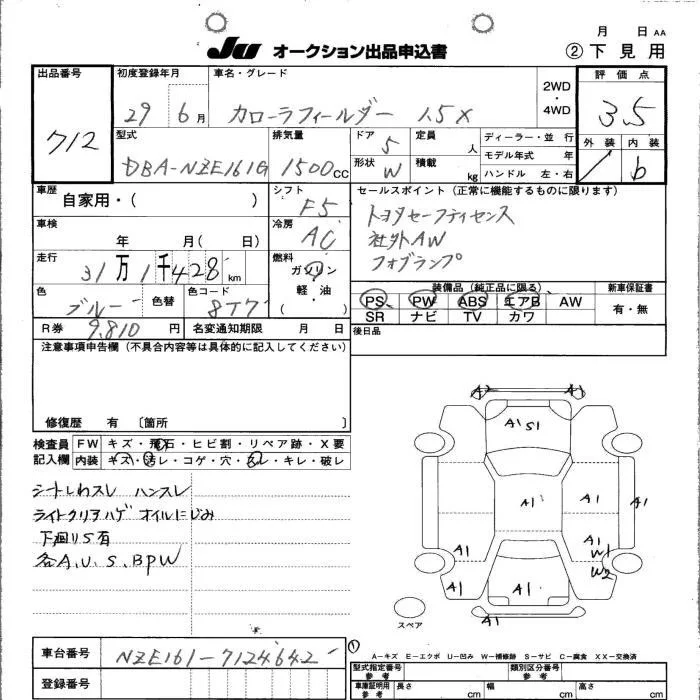 月 日 AA
JU オークション出品申込書 ② 下見用
出品番号 初度登録年月 車名・グレード 2WD・4WD 評価点
712 29 6月 カローラフィールダー 1.5X 3.5
型式 排気量 ドア 5 定員 人 ディーラー・並行 外装 内装
DBA-NZE161G 1500cc 形状 W 積載 kg モデル年式 年 b
ハンドル 左・右
車歴 自家用・( ) シフト F5 セールスポイント(正常に機能するものに限ります)
車検 年 月( 日) 冷房 AC トヨタセーフティセンス
社外AW
フォグランプ
走行 31万1千428km 燃料 ガソリン 軽・油 ( )
装備品(純正品に限る) 新車保証書
色 ブルー 色替 色コード 8T7 PS PW ABS エアB AW 有・無
SR ナビ TV カワ
R券 9,810円 名変通知期限 月 日 後日品
注意事項申告欄(不具合内容等は具体的に記入してください)
修復歴 有 〔箇所 〕
検査員記入欄 FW キズ・飛石・ヒビ割・リペア跡・X要
内装 キズ・汚レ・コゲ・穴・スレ・キレ・破レ
シートしわスレ ハンスレ
ライトクリアハゲ オイルにじみ
下廻りS有
各A.U.S.BPW
A1 S1
A1 A1 A1
A1 A1 W1
A1 A1 W2
A1
スペア
車台番号 NZE161-7124642
登録番号
① A-キズ E-エクボ U-凹み W-補修跡 S-サビ C-腐食 XX-交換済
型式指定番号 参考 類別区分番号 参考
車庫証明用 参考 長さ cm 幅 cm 高さ cm